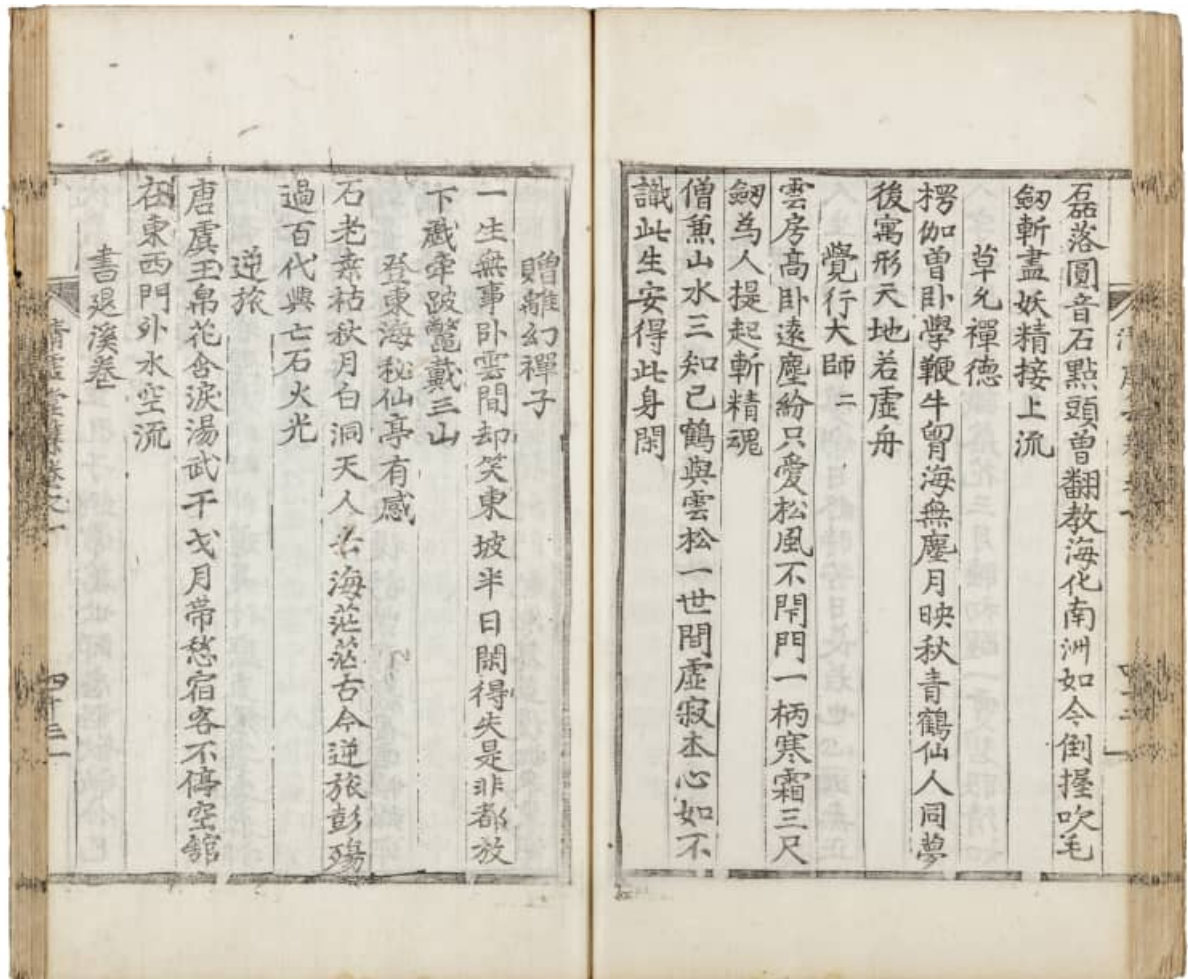 磊落圓音石點頭曽翻教海化南洲如今倒握吹毛
釼斬盡妖精接上流
草允禪德
楞伽曽卧學鞭牛胷海無塵月映秋青鶴仙人同夢
後寓形天地若虛舟
覺行大師二
雲房高卧遠塵紛只愛松風不閇門一柄寒霜三尺
釼為人提起斬精魂
僧兼山水三知己鶴與雲松一世間虛寂本心如不
識此生安得此身閑
贈離幻禪子
一生無事卧雲間却笑東坡半日閑得失是非都放
下戱牽跛鼈戴三山
登東海秘仙亭有感
石老枽枯秋月白洞天人去海茫茫古今逆旅彭殤
過百代興亡石火光
逆旅
唐虞玉帛花含淚湯武干戈月帶愁宿客不停空舘
在東西門外水空流
書退溪卷
清虛堂集卷之一
四十三